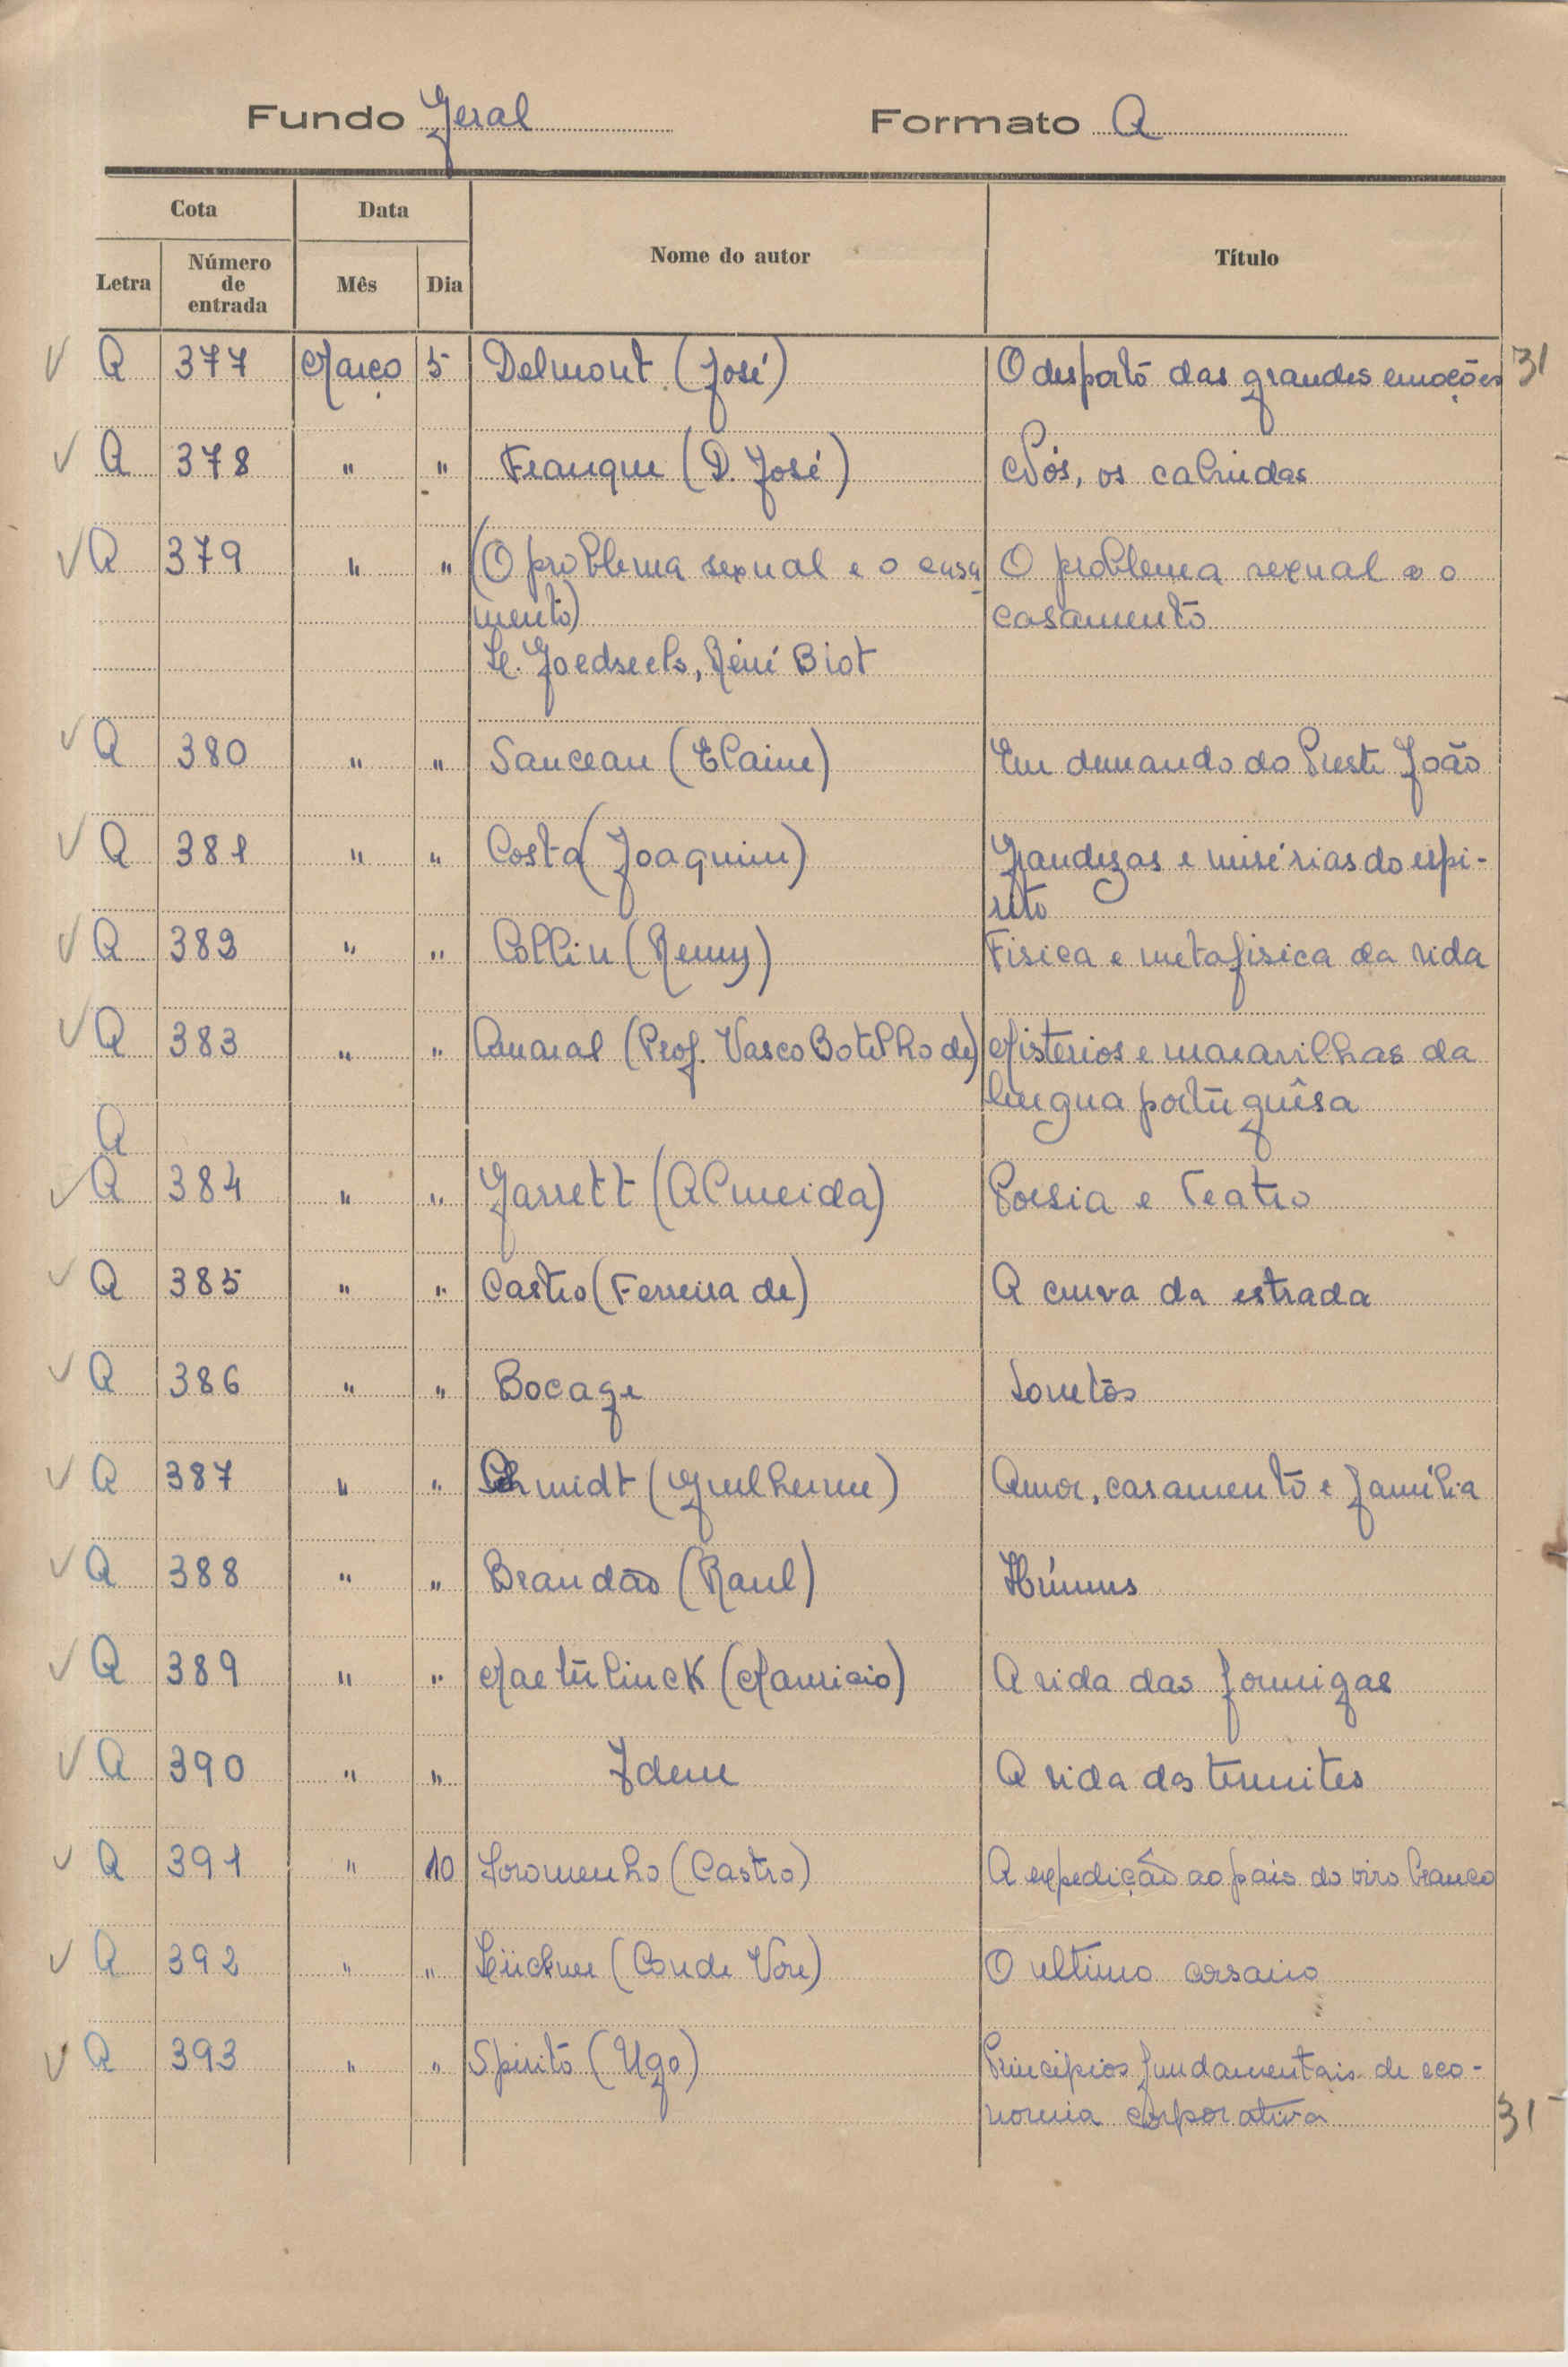 Fundo Geral Formato A
Cota Data Nome do autor Título
Letra Número de entrada Mês Dia
✓ A 377 Março 5 Delmont (José) O desporto das grandes emoções 31
✓ A 378 " " Franque (D. José) Nós, os cabindas
✓ A 379 " " (O problema sexual e o casa- O problema sexual e o
mento) casamento
H. Goedseels, Réné Biot
✓ A 380 " " Sanceau (Elaine) Em demanda do Preste João
✓ A 381 " " Costa (Joaquim) Grandezas e misérias do espi-
rito
✓ A 382 " " Collin (Remy) Fisica e metafisica da vida
✓ A 383 " " Amaral (Prof. Vasco Botelho de) Misterios e maravilhas da
lingua portuguêsa
A
✓ A 384 " " Garrett (Almeida) Poesia e Teatro
✓ A 385 " " Castro (Ferreira de) A curva da estrada
✓ A 386 " " Bocage Sonetos
✓ A 387 " " Schmidt (Guilherme) Amor, casamento e família
✓ A 388 " " Brandão (Raul) Húmus
✓ A 389 " " Maeterlinck (Mauricio) A vida das formigas
✓ A 390 " " Idem A vida das termites
✓ A 391 " 10 Soromenho (Castro) A expedição ao pais do oiro branco
✓ A 392 " " Lückner (Conde Von) O ultimo corsario
✓ A 393 " " Spirito (Ugo) Principios fundamentais de eco-
nomia corporativa 31